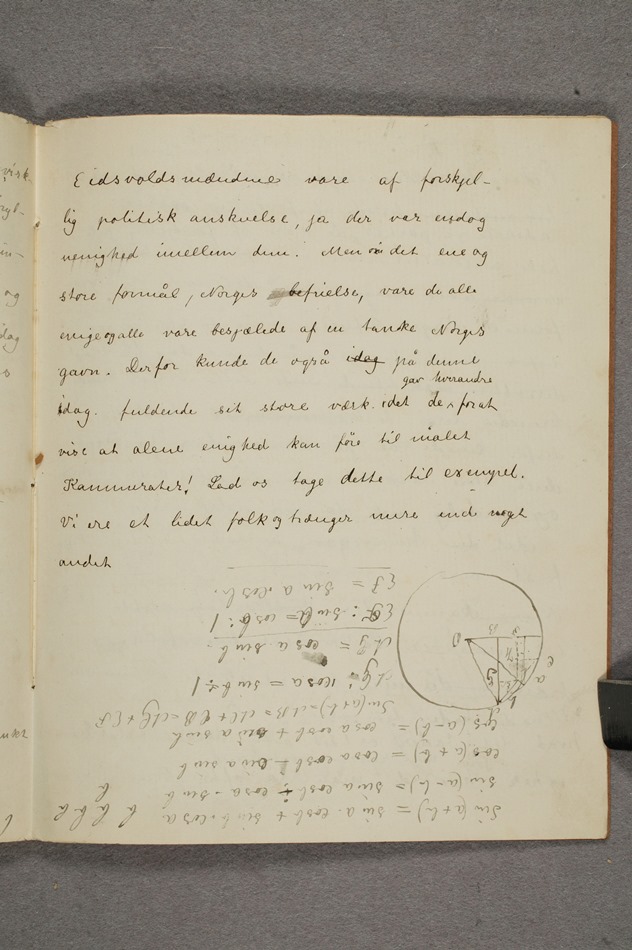 Eidsvoldsmændene vare af forskjel-
lig politisk anskuelse, ja der var endog
uenighed imellem dem. Men om det ene og
store formål, Norges befrielse, vare de alle
enige og alle vare besjælede af en tanke Norges
gavn. Derfor kunde de også idag på denne
gav hverandre
idag. fuldende sit store værk. idet de forat
vise at alene enighed kan føre til målet
Kammerater! Lad os tage dette til exempel.
Vi ere et lidet folk og trænger mere end noget
andet
sin (a+b) = sin a. cos b + sin b. cos a
sin (a-b) = sin a cos b ÷ cos a. sin b
cos (a+b) = cos a cos b - sin a sin b
cos (a-b) = cos a cos b + sin a sin b
: cos a = sin b : 1
= cos a. sin b
: sin a = cos b : 1
= sin a. cos b.